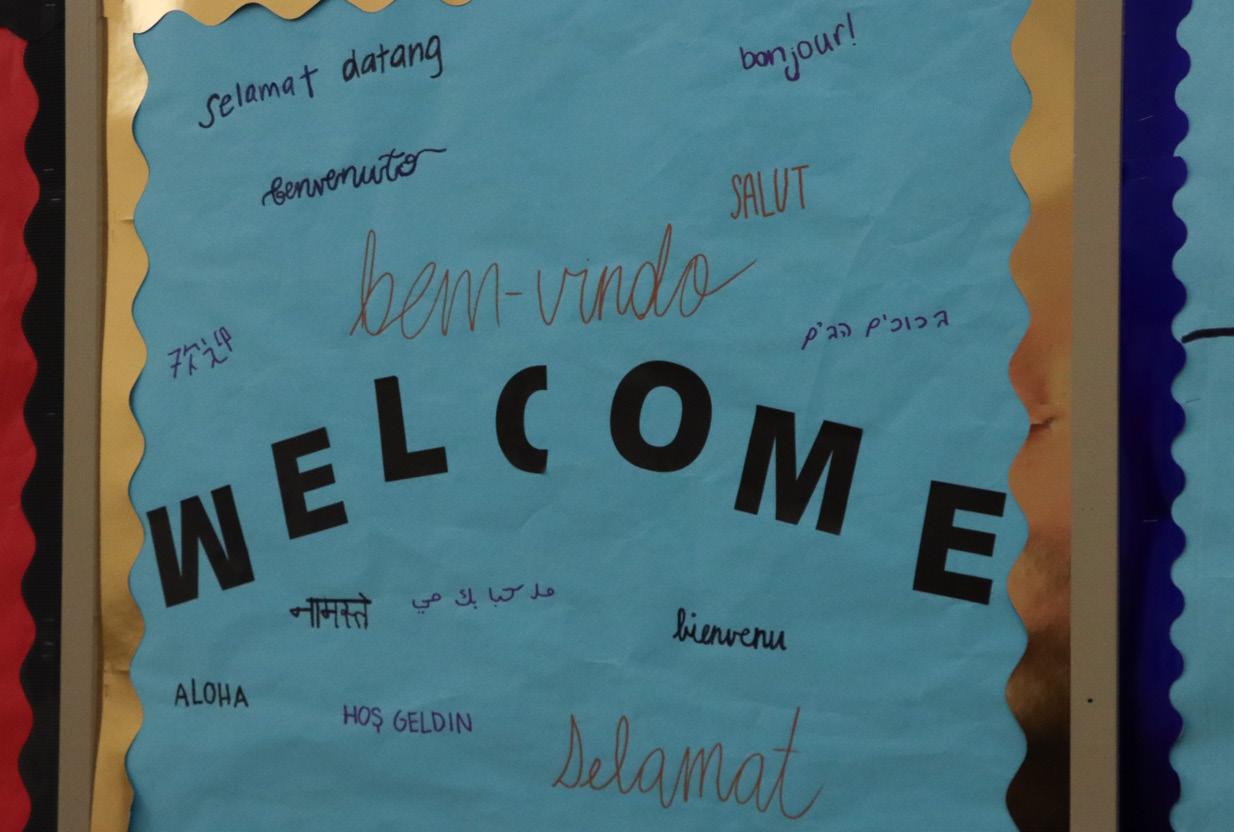 selamat datang
bonjour!
benvenuto
SALUT
bem-vindo
ברוכים הבים
WELCOME
नामस्ते
bienvenu
ALOHA
HOŞ GELDIN
Selamat